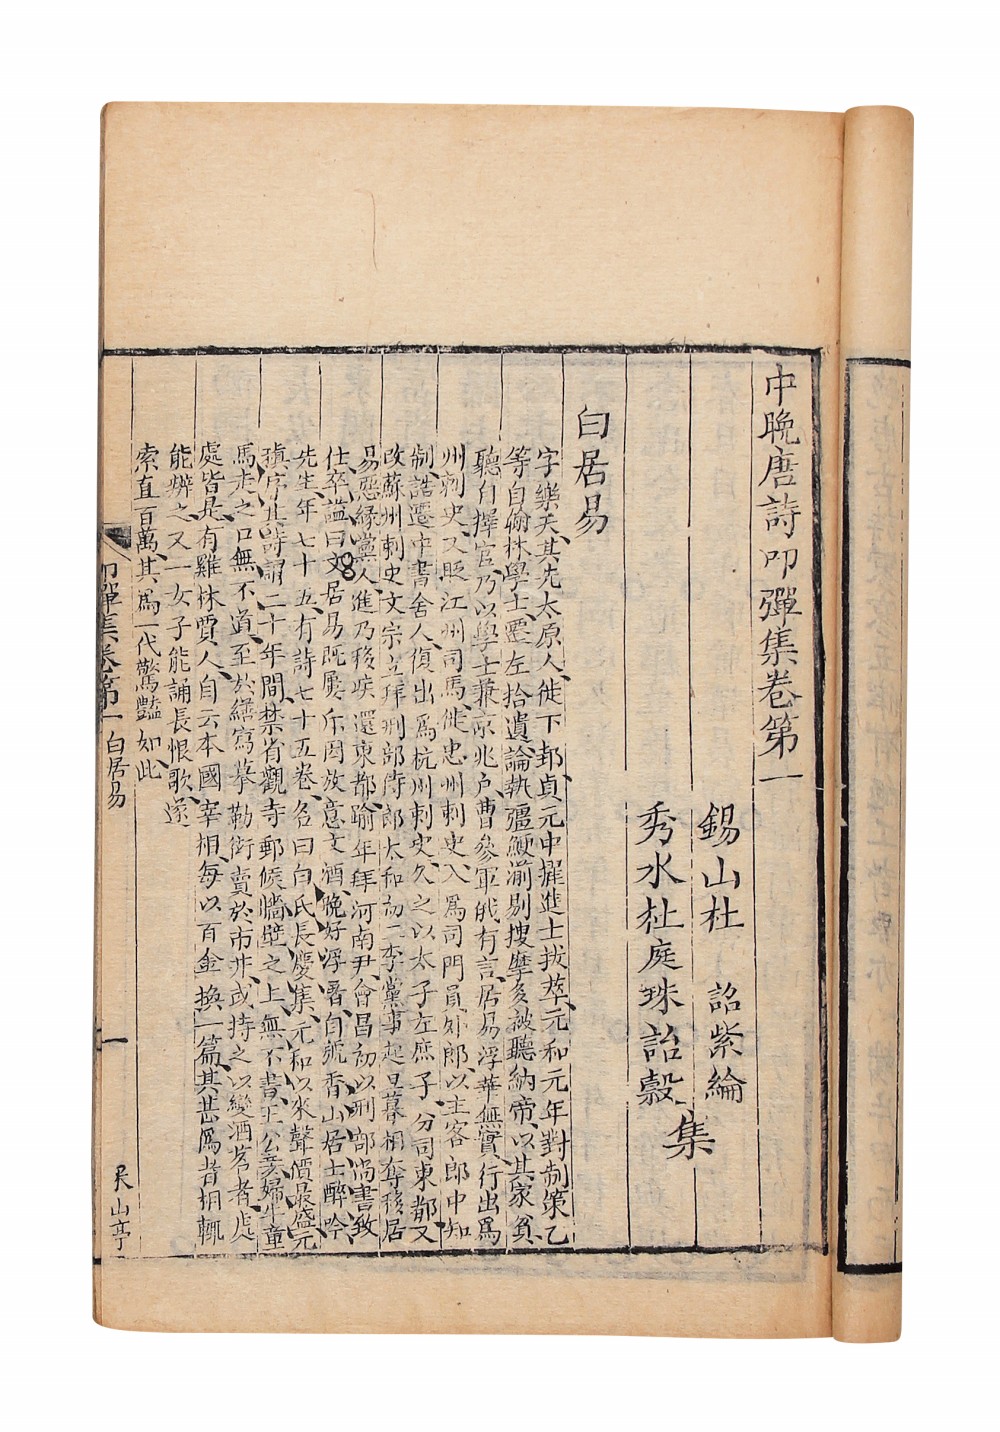 中晚唐詩叩彈集卷第一
錫山杜　詔紫綸
秀水杜庭珠詒穀
集
白居易
字樂天、其先太原人、徙下邽、貞元中擢進士拔萃、元和元年對制策乙
等、自翰林學士遷左拾遺、論執彊鯁、湔剔搜擿、多被聽納、帝以其家貧、
聽自擇官、乃以學士兼京兆戶曹參軍、俄有言居易浮華無實行、出爲
州刺史、又貶江州司馬、徙忠州刺史、入爲司門員外郎、以主客郎中知
制誥、遷中書舍人、復出爲杭州刺史、久之以太子左庶子、分司東都、又
改蘇州刺史、文宗立、拜刑部侍郎、太和初二李黨事起、旦暮相奪移、居
易惡緣黨人進、乃移疾、還東都、踰年拜河南尹、會昌初以刑部尚書致
仕、卒謚曰文、居易既屢斥、因放意文酒、晚好浮屠、自號香山居士、醉吟
先生、年七十五、有詩七十五卷、名曰白氏長慶集、元和以來聲價最盛、元
稹序其詩謂二十年間、禁省觀寺郵候牆壁之上無不書、王公妾婦牛童
馬走之口無不道、至於繕寫摹勒衒賣於市井、或持之以變酒茗者、處
處皆是、有雞林賈人、自云本國宰相、每以百金換一篇、其甚僞者相輒
能辨之、又一女子能誦長恨歌、遂
索直百萬、其爲一代驚豔如此、
叩彈集卷第一　白居易
一
采山亭